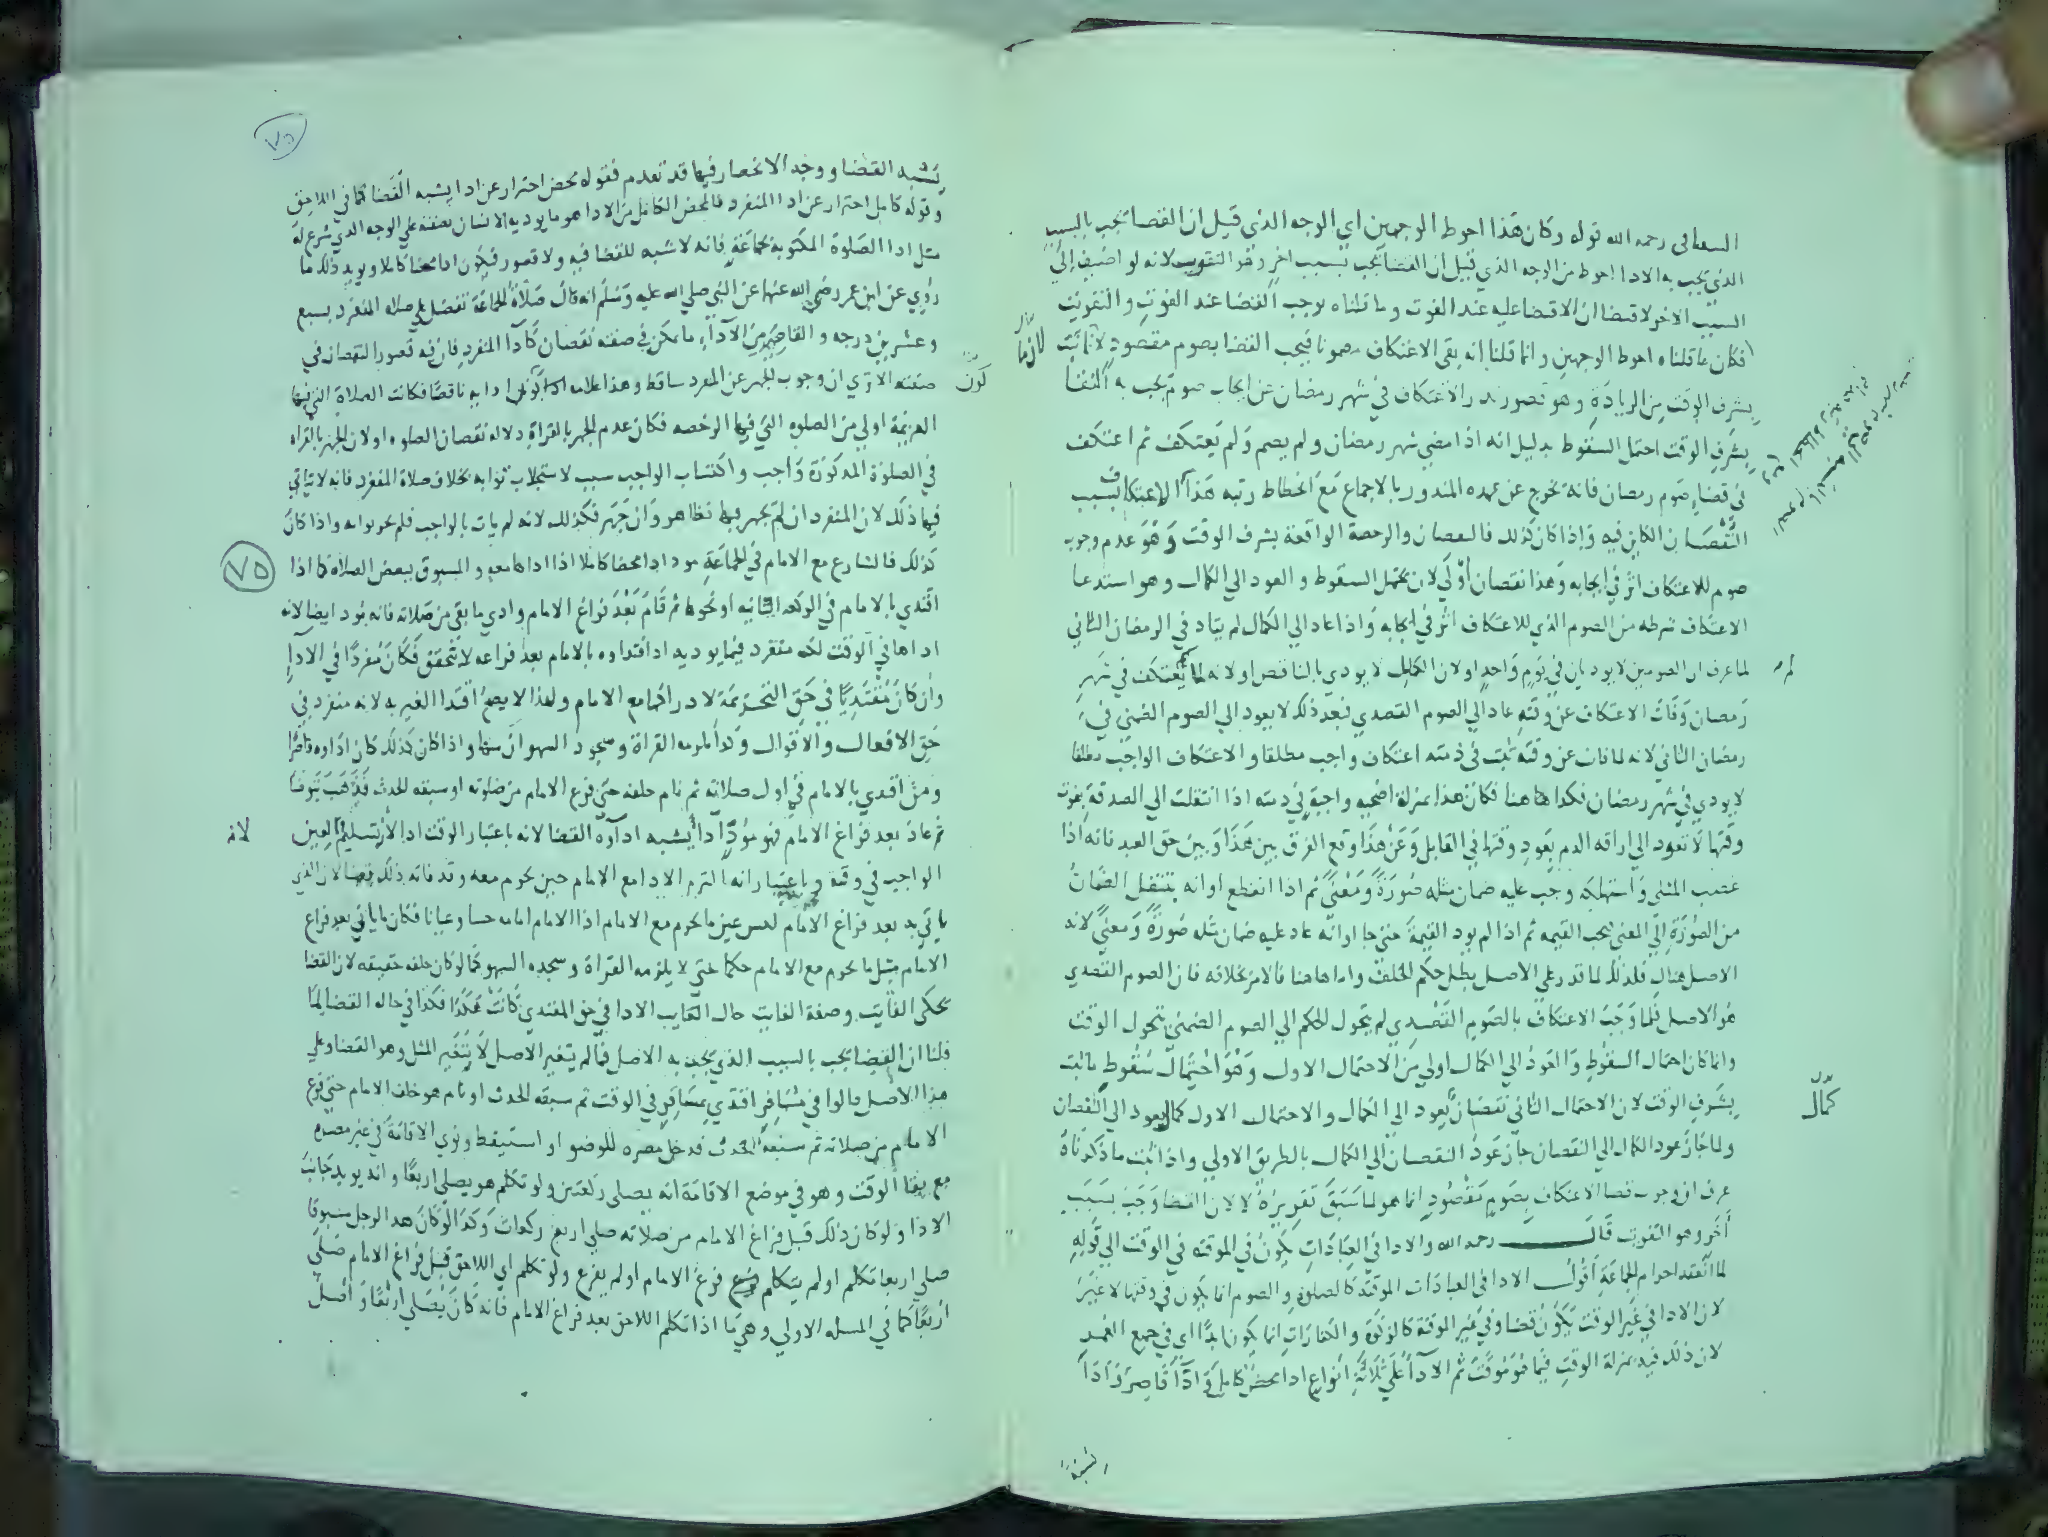 السعافى رحمه الله قوله وكان هذا احوط الوجهين اي الوجه الذي قيل ان القضا يجب بالسبب
الذي يجب به الادا احوط من الوجه الذي قيل ان القضا يجب بسبب اخر وهو التفويت لانه لو اضيف إلى
السبب الاخر لاقتضا ان لا قضا عليه عند الفوت وما قلناه يوجب القضا عند الفوت والتفويت
فكان ما قلناه احوط الوجهين وانما قلنا انه بقي الاعتكاف مضمونا فيجب القضا بصوم مقصود لان ما ثبت
بشرف الوقت من الزيادة وهو قصور نذر الاعتكاف في شهر رمضان عن ايجاب صوم يجب به
بشرف الوقت احتمل السقوط بدليل انه اذا مضي شهر رمضان ولم يصم ولم يعتكف ثم اعتكف
في قضا صوم رمضان فانه يخرج عن عهده المنذور بالاجماع مع انحطاط رتبه هذا الاعتكاف بسبب
النقصان الكاين فيه وإذا كان كذلك فالنقصان والرخصة الواقعة بشرف الوقت وهو عدم وجوب
صوم للاعتكاف اثر في ايجابه وهذا نقصان أولي لان يحتمل السقوط والعود الي الكمال وهو استدعا
الاعتكاف شرطه من الصوم الذي للاعتكاف اثر في ايجابه واذا عاد الي الكمال لم يتاد في الرمضان الثاني
لما عرف ان الصومين لا يوديان في يوم واحد ولان الكامل لا يودي بالناقص اولانه لما لم يعتكف في شهر
رمضان وفات الاعتكاف عن وقته عاد الي الصوم القصدي فبعد ذلك لا يعود الي الصوم الضمني في
رمضان الثاني لانه لما فات عن وقته ثبت في ذمته اعتكاف واجب مطلقا والاعتكاف الواجب مطلقا
لا يودي في شهر رمضان فكذا هاهنا فكان هذا بمنزلة اضحيه واجبة في ذمته اذا انتقلت الي الصدقة بفوت
وقتها لا تعود الي اراقه الدم بعود وقتها في القابل وعن هذا وقع الفرق بين هذا وبين حق العبد فانه اذا
غصب المثلي واستهلكه وجب عليه ضمان مثله صورة ومعني ثم اذا انقطع اوانه ينتقل الضمان
من الصورة إلي المعني فيجب القيمه ثم اذا لم يود القيمة حتي جا اوانه عاد عليه ضمان مثله صورة ومعني لانه
الاصل هنالك فلذلك لما قدر علي الاصل بطل حكم الخلف واما هاهنا فالامر بخلافه فان الصوم القصدي
هو الاصل فلما وجب الاعتكاف بالصوم القصدي لم يتحول الحكم الي الصوم الضمني بتحول الوقت
وانما كان احتمال السقوط والعود الي الكمال اولي من الاحتمال الاول وهو احتمال سقوط ما ثبت
بشرف الوقت لان الاحتمال الثاني نقصان يعود الي الكمال والاحتمال الاول كمال يعود الي النقصان
ولما جاز عود الكمال الي النقصان جاز عود النقصان الي الكمال بالطريق الاولي واذا ثبت ما ذكرناه
عرف ان وجوب قضا الاعتكاف بصوم مقصود انما هو لما سبق تقريره لا لان القضا وجب بسبب
آخر وهو التفويت قال رحمه الله والادا في العبادات يكون في الموقته في الوقت الي قوله
لما انعقد احرام الجماعة أقول الادا في العبادات الموقتة كالصلوه والصوم انما يكون في وقتها لا غير
لان الادا في غير الوقت يكون قضا وفي غير الموقتة كالزكوة والكفارات انما يكون ابدا اي في جميع العمر
لان ذلك فيه بمنزلة الوقت فيما هو موقت ثم الادا علي ثلثة انواع ادا محض كامل وادا قاصر وادا
لازما
لم
كمال
يشبه
يشبه القضا ووجه الانحصار فيها قد تقدم فقوله محض احتراز عن ادا يشبه القضا كما في اللاحق
وقوله كامل احتراز عن ادا المنفرد فالمحض الكامل من الادا هو ما يوديه الانسان بصفته علي الوجه الذي شرع له
مثل ادا الصلوة المكتوبة بجماعة فانه لا شبه للقضا فيه ولا قصور فيكون ادا محضا كاملا ويويد ذلك ما
روي عن ابن عمر رضي الله عنهما عن النبي صلي الله عليه وسلم انه قال صلاة الجماعة تفضل علي صلاه المنفرد بسبع
وعشرين درجه والقاصر من الادا ما يمكن في صفته نقصان كادا المنفرد فان فيه قصورا لنقصان في
صفته الا تري ان وجوب الجهر عن المنفرد ساقط وهذا علامه كون ادايه ناقصا فكانت الصلاة التي فيها
العزيمة اولي من الصلوه التي فيها الرخصه فكان عدم الجهر بالقراة دلاله نقصان الصلوه اولان الجهر بالقراه
في الصلوة المذكورة واجب واكتساب الواجب سبب لاستجلاب ثوابه بخلاف صلاة المنفرد فانه لا يتاتي
فيها ذلك لان المنفرد ان لم يجهر بها فظاهر وان جهر فكذلك لانه لم يات بالواجب فلم يحز ثوابه واذا كان
كذلك فالشارع مع الامام في الجماعة مود ادا محضا كاملا اذا اداها معه والمسبوق ببعض الصلاه كما اذا
اقتدي بالامام في الركعه الثانيه او نحوها ثم قام بعد فراغ الامام وادي ما بقي من صلاته فانه مود ايضا لانه
اداها في الوقت لكنه منفرد فيما يوديه اذ اقتداوه بالامام بعد فراغه لا يتحقق فكان منفردا في الادا
وان كان مقتديا في حق التحريمة لادراكها مع الامام ولهذا لا يصح اقتدا الغير به لانه منفرد في
حق الافعال والاقوال وكذا لزمه القراة وسجود السهو ان سها واذا كان كذلك كان اداوه قاصرا
ومن اقتدي بالامام في اول صلاته ثم نام خلفه حتي فرغ الامام من صلوته او سبقه الحدث فذهب يتوضا
ثم عاد بعد فراغ الامام فهو مود ادا يشبه اداوه القضا لانه باعتبار الوقت ادا لانه تسليم لعين
الواجب في وقته وباعتبار انه التزم الادا مع الامام حين تحرم معه وقد فاته ذلك قضا لان الذي
ياتي به بعد فراغ الامام ليس عين ما تحرم مع الامام اذ الامام امامه حسا وعيانا فكان ما ياتي بعد فراغ
الامام مثل ما تحرم مع الامام حكما حتي لا يلزمه القراة وسجده السهو كما لو كان خلفه حقيقه لان القضا
يحكي الفايت وصفة الفايت حال الفايت الادا في حق المقتدي كانت هكذا فكذا في حاله القضا لما
قلنا ان القضا يجب بالسبب الذي يجب به الاصل فما لم يتغير الاصل لا يتغير المثل وهو القضا وعلي
هذا الاصل قالوا في مسافر اقتدي بمسافر في الوقت ثم سبقه الحدث او نام هو خلف الامام حتي فرغ
الامام من صلاته ثم سبقه الحدث فدخل مصره للوضو او استيقظ ونوي الاقامة في غير مصره
مع بقا الوقت وهو في موضع الاقامة انه يصلي ركعتين ولو تكلم هو يصلي اربعا وانه يويد جانب
الادا ولو كان ذلك قبل فراغ الامام من صلاته صلي اربع ركعات وكذا لو كان هذا الرجل مسبوقا
صلي اربعا تكلم او لم يتكلم فرغ الامام او لم يفرغ ولو تكلم اي اللاحق قبل فراغ الامام صلي
اربعا كما في المسله الاولي وهي ما اذا تكلم اللاحق بعد فراغ الامام فانه كان يصلي اربعا واصل
كون
لانه
٧٥
٧٥